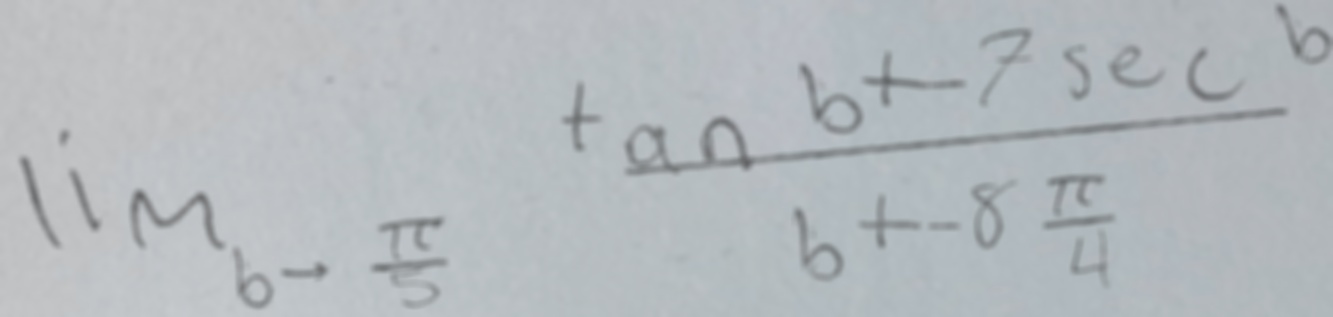 \lim_{b \to \frac{\pi}{5}} \frac{\tan b + -7 \sec b}{b + -8 \frac{\pi}{4}}